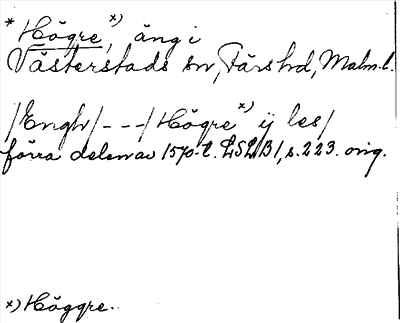 * Högre,*) äng i
Västerstads sn, Färs hd, Malm. l.
/Engh/---/Högre*) ij les/
förra delen av 1570-t. LSLB1, s. 223. orig.
*) Höggre.